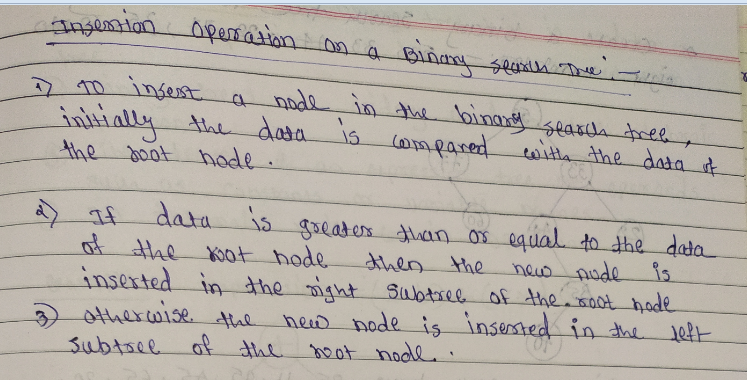 Insertion Operation on a Binary search Tree :-
1) To insert a node in the binary search tree,
initially the data is compared with the data of
the root node.
2) If data is greater than or equal to the data
of the root node then the new node is
inserted in the right subtree of the root node
3) otherwise the new node is inserted in the left
subtree of the root node.